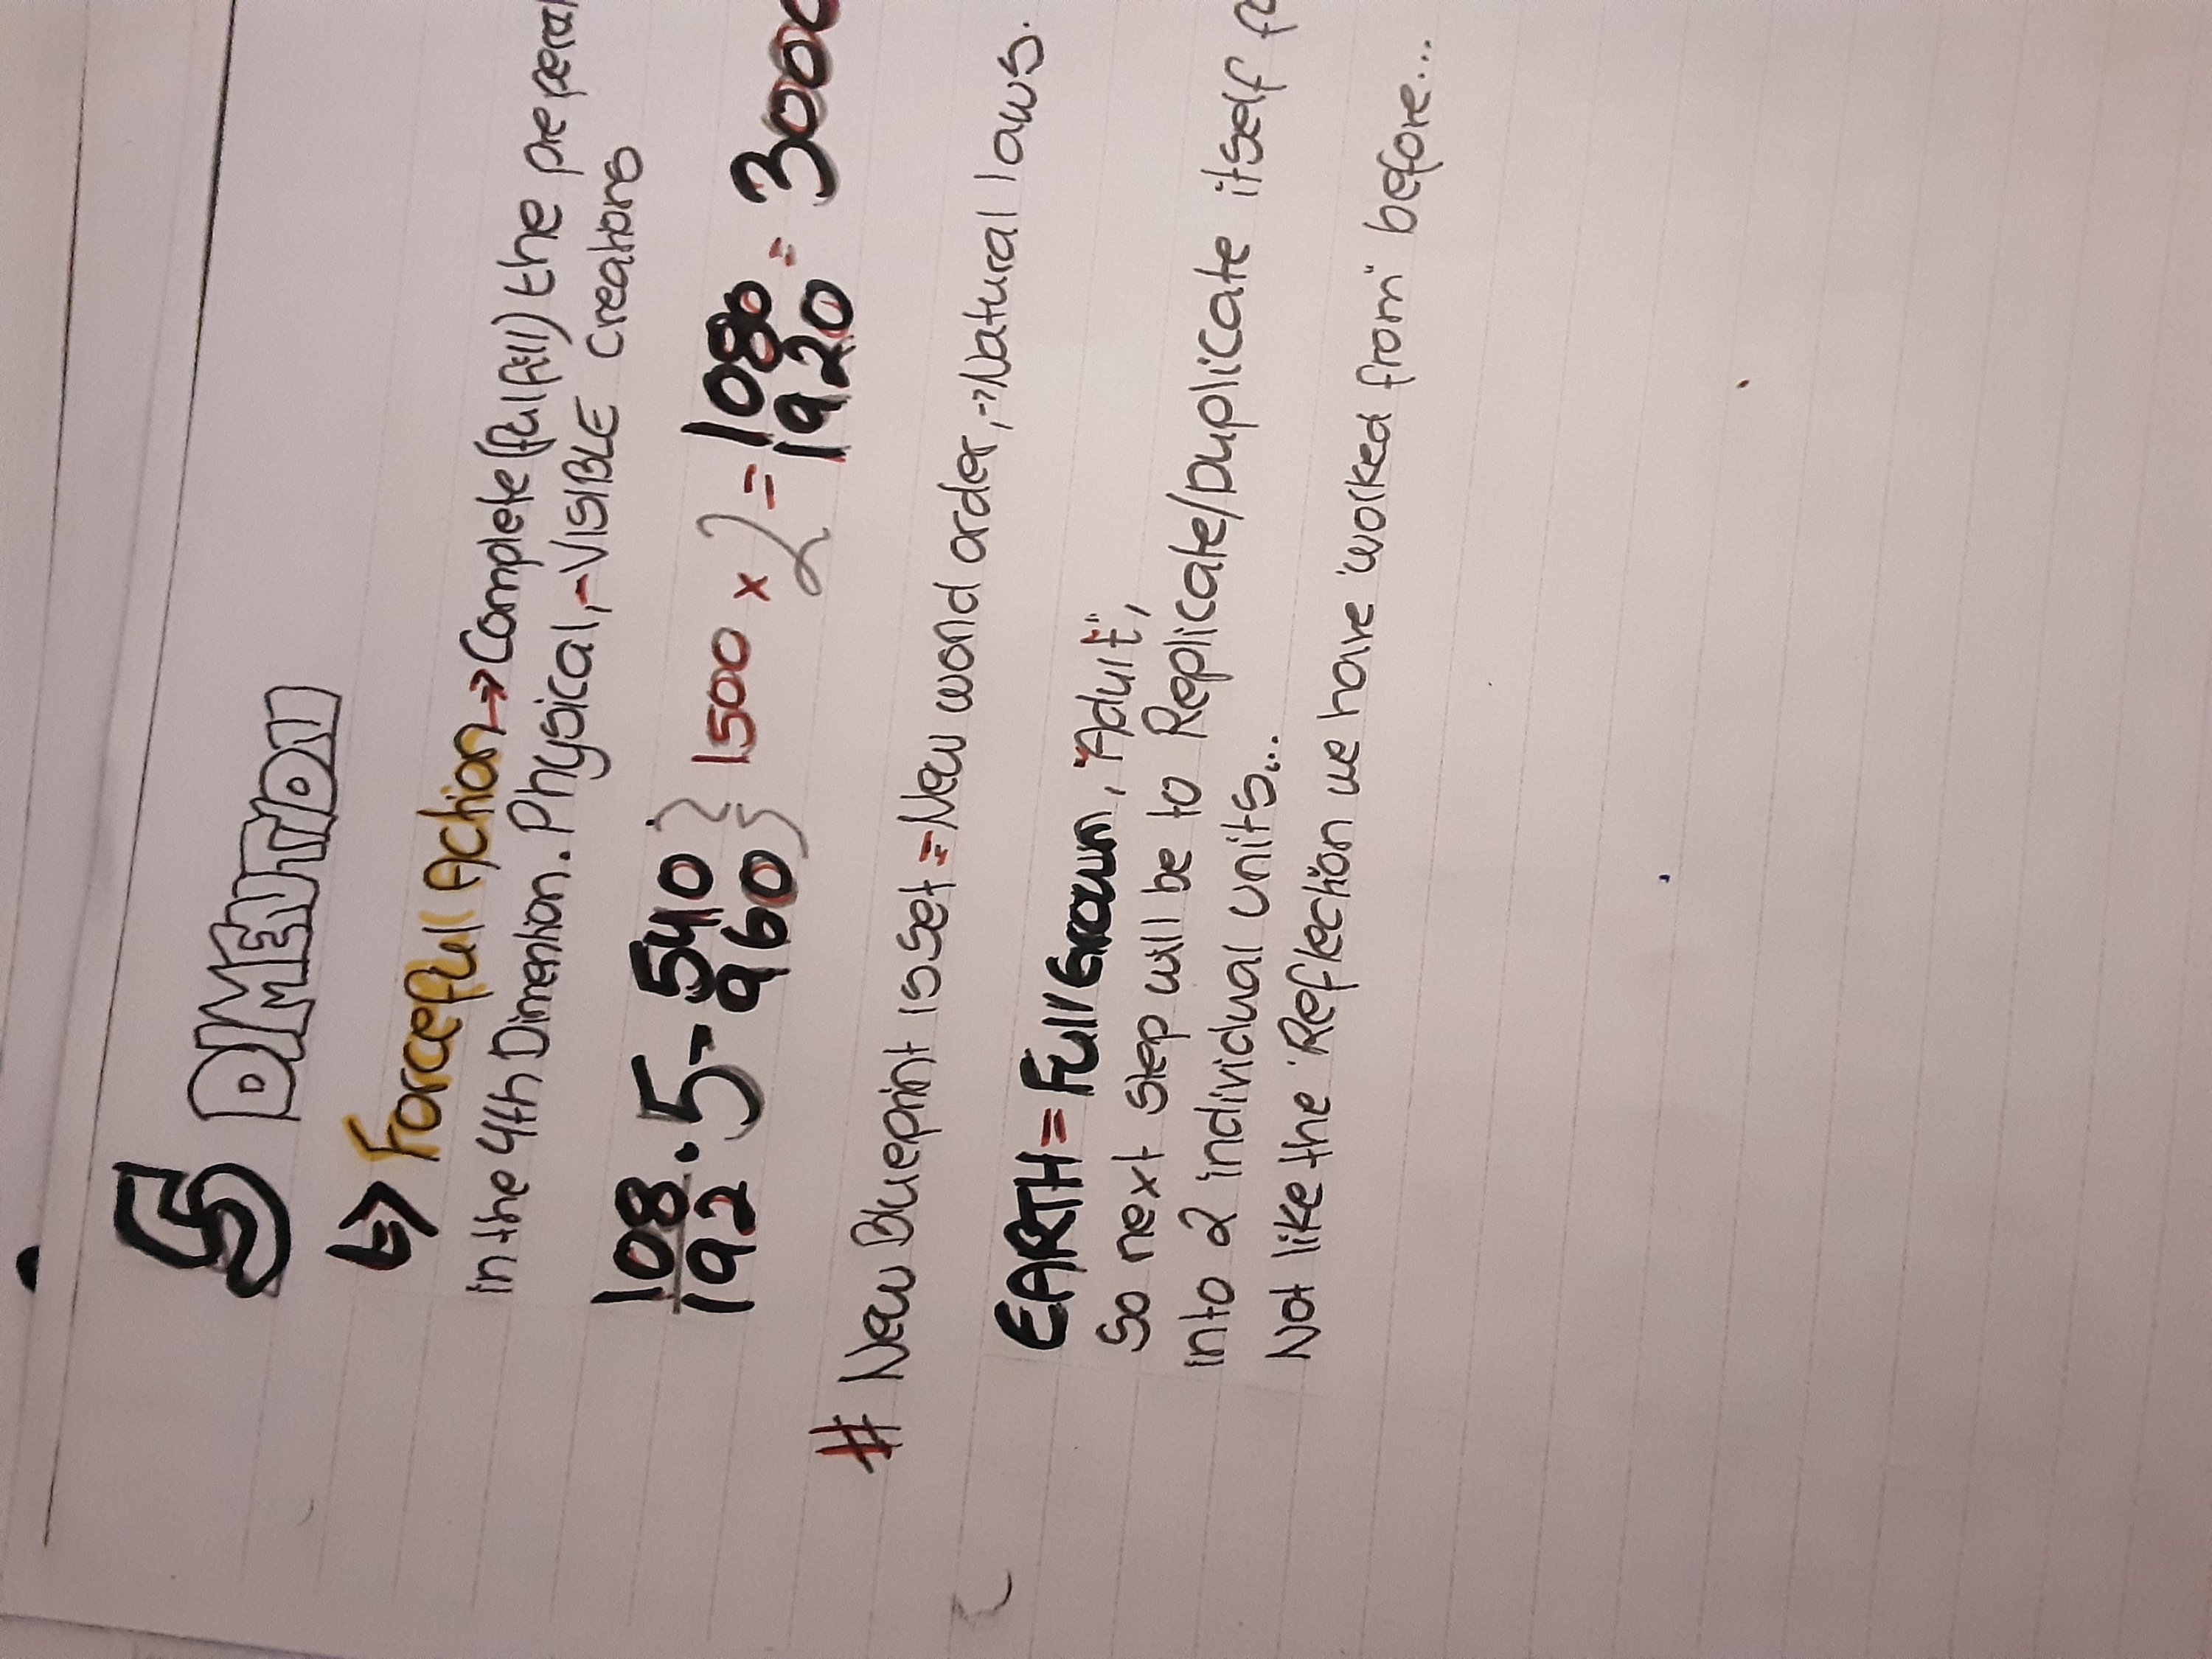 5 DIMENTION
↳ Forcefull Action → Complete (fulfill) the
in the 4th Dimention. Physical, - VISIBLE creations
108 · 5 - 540 } 1500 × 2 = 1080 = 3000
192 960 1920
# New Blueprint is set = New world order, → Natural laws.
EARTH = Full Grown, "Adult",
So next step will be to Replicate/Duplicate itself
into 2 individual units...
Not like the 'Reflection we have 'worked from" before...